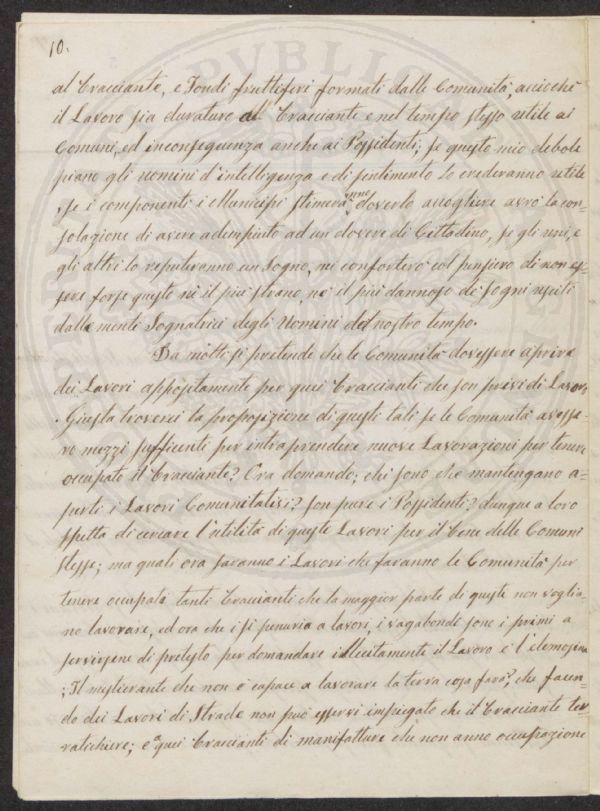 10.
al Bracciante, e Fondi fruttiferi formati dalle Comunità, acciochè
il Lavoro sia duraturo al Bracciante e nel tempo stesso utile ai
Comuni, ed inconseguenza anche ai Possidenti; se questo mio debole
piano gli uomini d'intelligenza e di sentimento lo crederanno utile
, se i componenti i Municipi stimeranno doverlo accogliere avrò la con-
solazione di avere adempiuto ad un dovere di Cittadino, se gli uni, e
gli altri lo reputeranno un Sogno, mi conforterò col pensiero di non es-
sere forse questo nè il più strano, nè il più dannoso de' Sogni usciti
dalle menti Sognatrici degli Uomini del nostro tempo.
Da molti si pretende che le Comunità dovessero aprire
dei Lavori appositamente per quei Braccianti che son privi di Lavoro
. Giusta troverei la proposizione di questi tali se le Comunità avesse-
ro mezzi sufficenti per intraprendere nuove Lavorazioni per tenere
occupato il Bracciante? Ora domando; chi sono che mantengano a-
perti i Lavori Comunitativi? son pure i Possidenti? dunque a loro
spetta di cercare l'utilità di queste Lavori per il bene delle Comuni
stesse; ma quali ora saranno i Lavori che faranno le Comunità per
tenere occupati tanti Braccianti che la maggior parte di questi non voglia-
no lavorare, ed ora che i si penuria a lavori, i vagabondi sono i primi a
servirsene di pretesto per domandare illecitamente il Lavoro e l'elemosina
; Il mestierante che non è capace a lavorare la terra cosa farà?, che facen-
do dei Lavori di Strade non può esservi impiegato che il Bracciante ter-
raticchiere; e quei Braccianti di manifatture che non anno occupazione